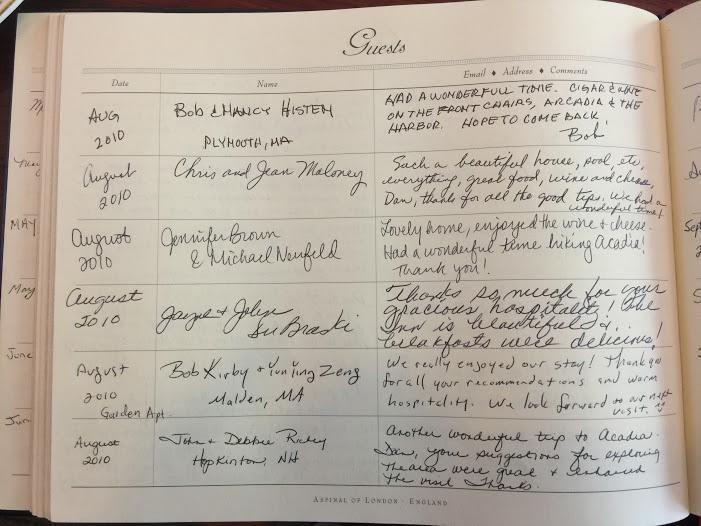 Guests
Date
Name
Email ♦ Address ♦ Comments
AUG
2010
Bob & NANCY HISTEN
PLYMOUTH, MA
HAD A WONDERFUL TIME. CIGAR & WINE
ON THE FRONT CHAIRS, ARCADIA & THE
HARBOR. HOPE TO COME BACK!
Bob
August
2010
Chris and Jean Maloney
Such a beautiful house, pool, etc,
everything, great food, wine and cheese,
Dan, thanks for all the good tips. We had a
wonderful time!
MAY
August
2010
Jennifer Brown
& Michael Neufeld
Lovely home, enjoyed the wine & cheese.
Had a wonderful time hiking Acadia!
Thank you!
May
August
2010
Jayne & John
Thanks so much for your
gracious hospitality! The
Inn is beautiful &
breakfasts were delicious!
June
August
2010
Garden Apt.
Bob Kirby & Yun Ying Zeng
Malden, MA
We really enjoyed our stay! Thank you
for all your recommendations and warm
hospitality. We look forward to our next
visit.
Jun
August
2010
John & Debbie
Hopkinton, NH
Another wonderful trip to Acadia.
Dan, your suggestions for exploring
the area were great & enhanced
the visit. Thanks.
ASPINAL OF LONDON · ENGLAND